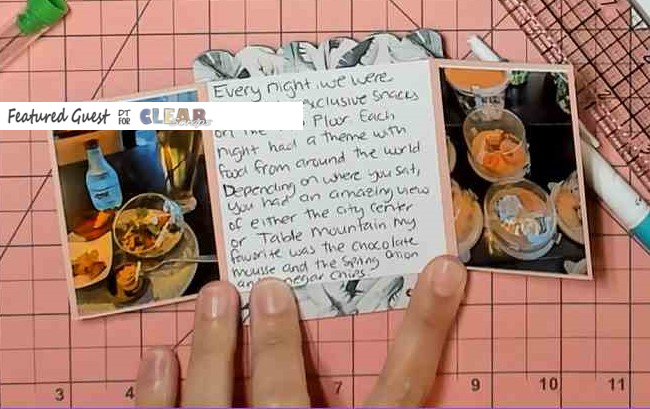 Featured Guest DT FOR CLEAR
Every night, we were
exclusive snacks
on the Floor Each
night had a theme with
food from around the world
Depending on where you sat,
you had an amazing view
of either the city center
or Table mountain My
favorite was the chocolate
mousse and the Spring onion
and Chips.
3 4 7 9 10 11